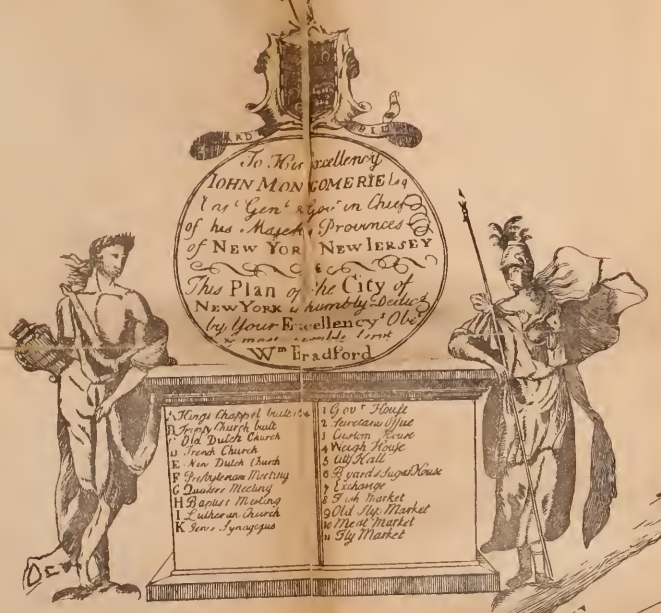 GARD BIEN
To His Excellency
IOHN MONTGOMERIE Esq
Capt Genl & Govr in Chief
of his Majesti Provinces
of NEW YORK NEW IERSEY
This Plan of the City of
NEW YORK is humbly Dedicd
by Your Excellencys Obet
& most
Wm Bradford
A Kings Chappel built
B Trinity Church built
C Old Dutch Church
D French Church
E New Dutch Church
F Presbyterian Meeting
G Quakers Meeting
H Baptist Meeting
I Lutheran Church
K Jews Synagogus
1 Govr House
2 Secretaris Offise
3 Custom House
4 Weigh House
5 Citty Hall
6 Byards Sugar House
7 Exchange
8 Fish Market
9 Old Slip Market
10 Meal Market
11 Fly Market